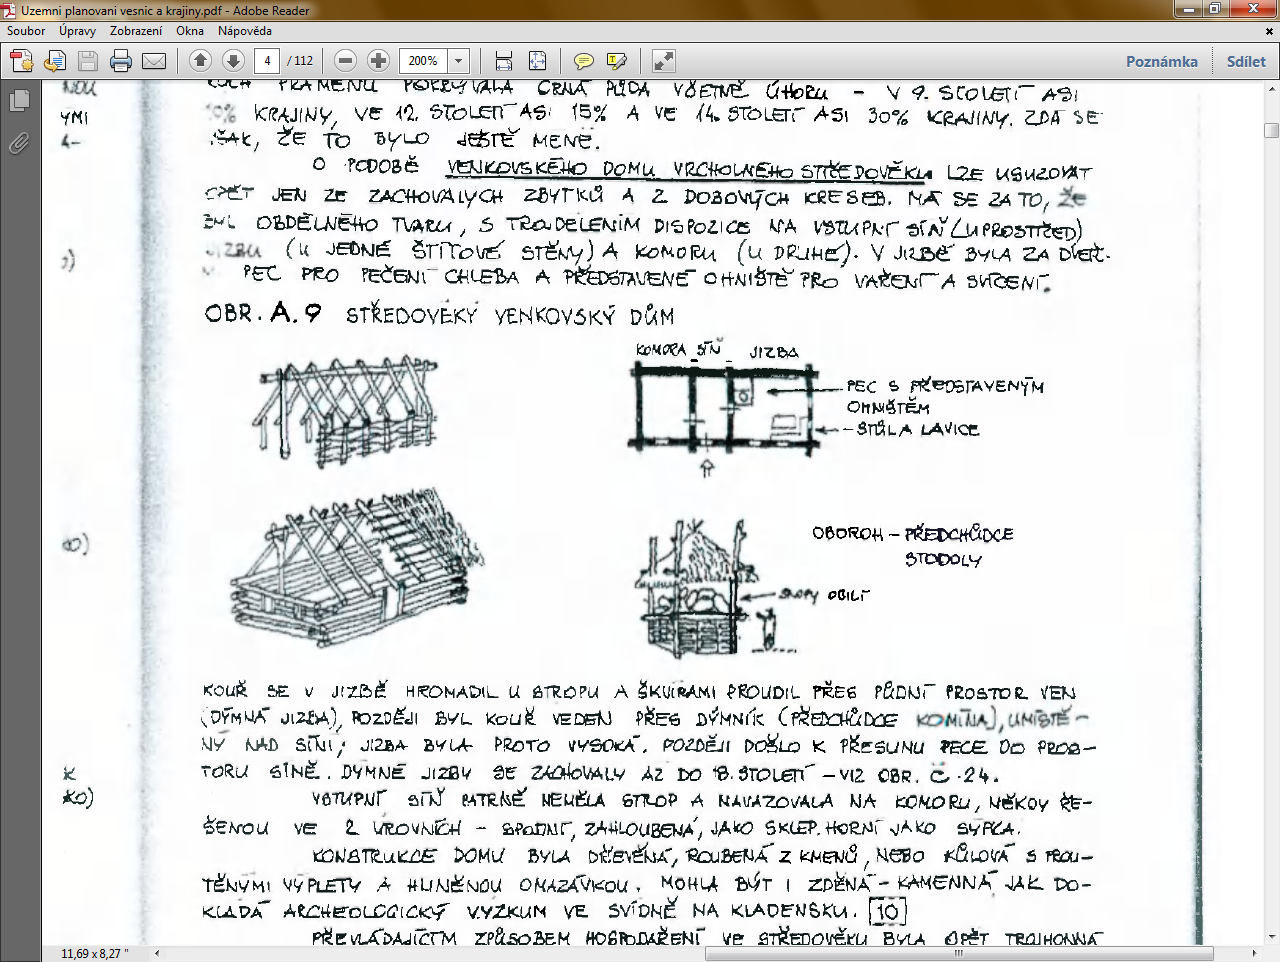 Uzemni planovani vesnic a krajiny.pdf - Adobe Reader
Soubor Úpravy Zobrazení Okna Nápověda
4 / 112 200% Poznámka Sdílet
PRAMENŮ POKRÝVALA ČRNÁ PŮDA VČETNĚ ÚHORU - V 9. STOLETÍ ASI
10% KRAJINY, VE 12. STOLETÍ ASI 15% A VE 14. STOLETÍ ASI 30% KRAJINY. ZDÁ SE
VŠAK, ŽE TO BYLO JEŠTĚ MÉNĚ.
O PODOBĚ VENKOVSKÉHO DOMU VRCHOLNÉHO STŘEDOVĚKU LZE USUZOVAT
OPĚT JEN ZE ZACHOVALÝCH ZBYTKŮ A Z DOBOVÝCH KRESEB. MÁ SE ZA TO, ŽE
BYL OBDÉLNÉHO TVARU, S TROJDĚLENÍM DISPOZICE NA VSTUPNÍ SÍŇ (UPROSTŘED)
JIZBU (U JEDNÉ ŠTÍTOVÉ STĚNY) A KOMORU (U DRUHÉ). V JIZBĚ BYLA ZA DVEŘ-
MI PEC PRO PEČENÍ CHLEBA A PŘEDSTAVENÉ OHNIŠTĚ PRO VAŘENÍ A SVÍCENÍ.
NOU
ÝMI
4-
OBR. A.9 STŘEDOVĚKÝ VENKOVSKÝ DŮM
KOMORA SÍŇ JIZBA
PEC S PŘEDSTAVENÝM
OHNIŠTĚM
STŮL A LAVICE
OBOROH - PŘEDCHŮDCE
STODOLY
SNOPY OBILÍ
KOUŘ SE V JIZBĚ HROMADIL U STROPU A ŠKVÍRAMI PROUDIL PŘES PŮDNÍ PROSTOR VEN
(DÝMNÁ JIZBA), POZDĚJI BYL KOUŘ VEDEN PŘES DÝMNÍK (PŘEDCHŮDCE KOMÍNA), UMÍSTĚ-
NÝ NAD SÍNÍ; JIZBA BYLA PROTO VYSOKÁ. POZDĚJI DOŠLO K PŘESUNU PECE DO PROS-
TORU SÍNĚ. DÝMNÉ JIZBY SE ZACHOVALY AŽ DO 18. STOLETÍ - VIZ OBR. Č. 24.
VSTUPNÍ SÍŇ PATRNĚ NEMĚLA STROP A NAVAZOVALA NA KOMORU, NĚKDY ŘE-
ŠENOU VE 2 ÚROVNÍCH - SPODNÍ, ZAHLOUBENÁ, JAKO SKLEP. HORNÍ JAKO SÝPKA.
KONSTRUKCE DOMU BYLA DŘEVĚNÁ, ROUBENÁ Z KMENŮ, NEBO KŮLOVÁ S PROU-
TĚNÝMI VÝPLETY A HLINĚNOU OMAZÁVKOU. MOHLA BÝT I ZDĚNÁ - KAMENNÁ JAK DO-
KLADÁ ARCHEOLOGICKÝ VÝZKUM VE SVÍDNĚ NA KLADENSKU. 10
PŘEVLÁDAJÍCÍM ZPŮSOBEM HOSPODAŘENÍ VE STŘEDOVĚKU BYLA OPĚT TROJHONNÁ
11,69 x 8,27 "